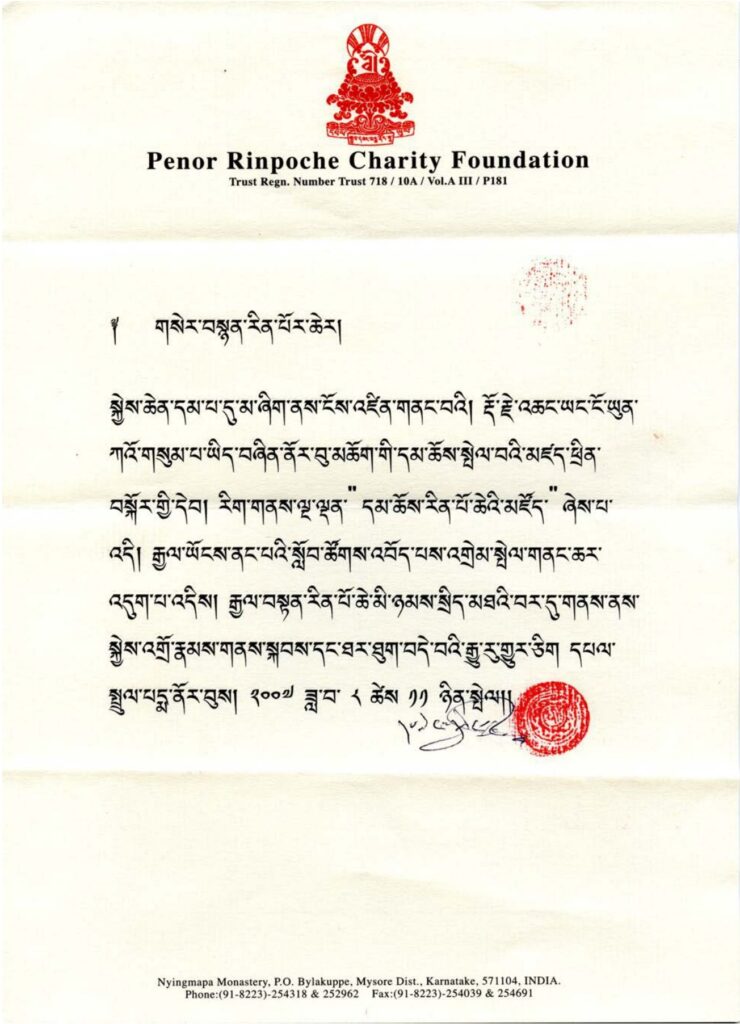 Penor Rinpoche Charity Foundation
Trust Regn. Number Trust 718 / 10A / Vol.A III / P181
༉ གསེར་བསྙན་རིན་པོར་ཆེར།
སྐྱེས་ཆེན་དམ་པ་དུ་མ་ཞིག་ནས་ངོས་འཛིན་གནང་བའི། རྡོ་རྗེ་འཆང་ཡང་ངོ་ཡུན་
ཀའོ་གསུམ་པ་ཡིད་བཞིན་ནོར་བུ་མཆོག་གི་དམ་ཆོས་སྤེལ་བའི་མཛད་ཕྲིན་
བསྐོར་གྱི་དེབ། རིག་གནས་ལྔ་ལྡན་" དམ་ཆོས་རིན་པོ་ཆེའི་མཛོད་" ཞེས་པ་
འདི། རྒྱལ་ཡོངས་ནང་པའི་སློབ་ཚོགས་འབོད་པས་འགྲེམ་སྤེལ་གནང་ཆར་
འདུག་པ་འདིས། རྒྱལ་བསྟན་རིན་པོ་ཆེ་མི་ཉམས་སྲིད་མཐའི་བར་དུ་གནས་ནས་
སྐྱེས་འགྲོ་རྣམས་གནས་སྐབས་དང་ཐར་ཐུག་བདེ་བའི་རྒྱུ་རུ་གྱུར་ཅིག དཔལ་
སྤྲུལ་པདྨ་ནོར་བུས། ༢༠༠༧ ཟླ་བ་ ༨ ཚེས་ ༡༡ ཉིན་སྤེལ།།
Nyingmapa Monastery, P.O. Bylakuppe, Mysore Dist., Karnatake, 571104, INDIA.
Phone:(91-8223)-254318 & 252962 Fax:(91-8223)-254039 & 254691